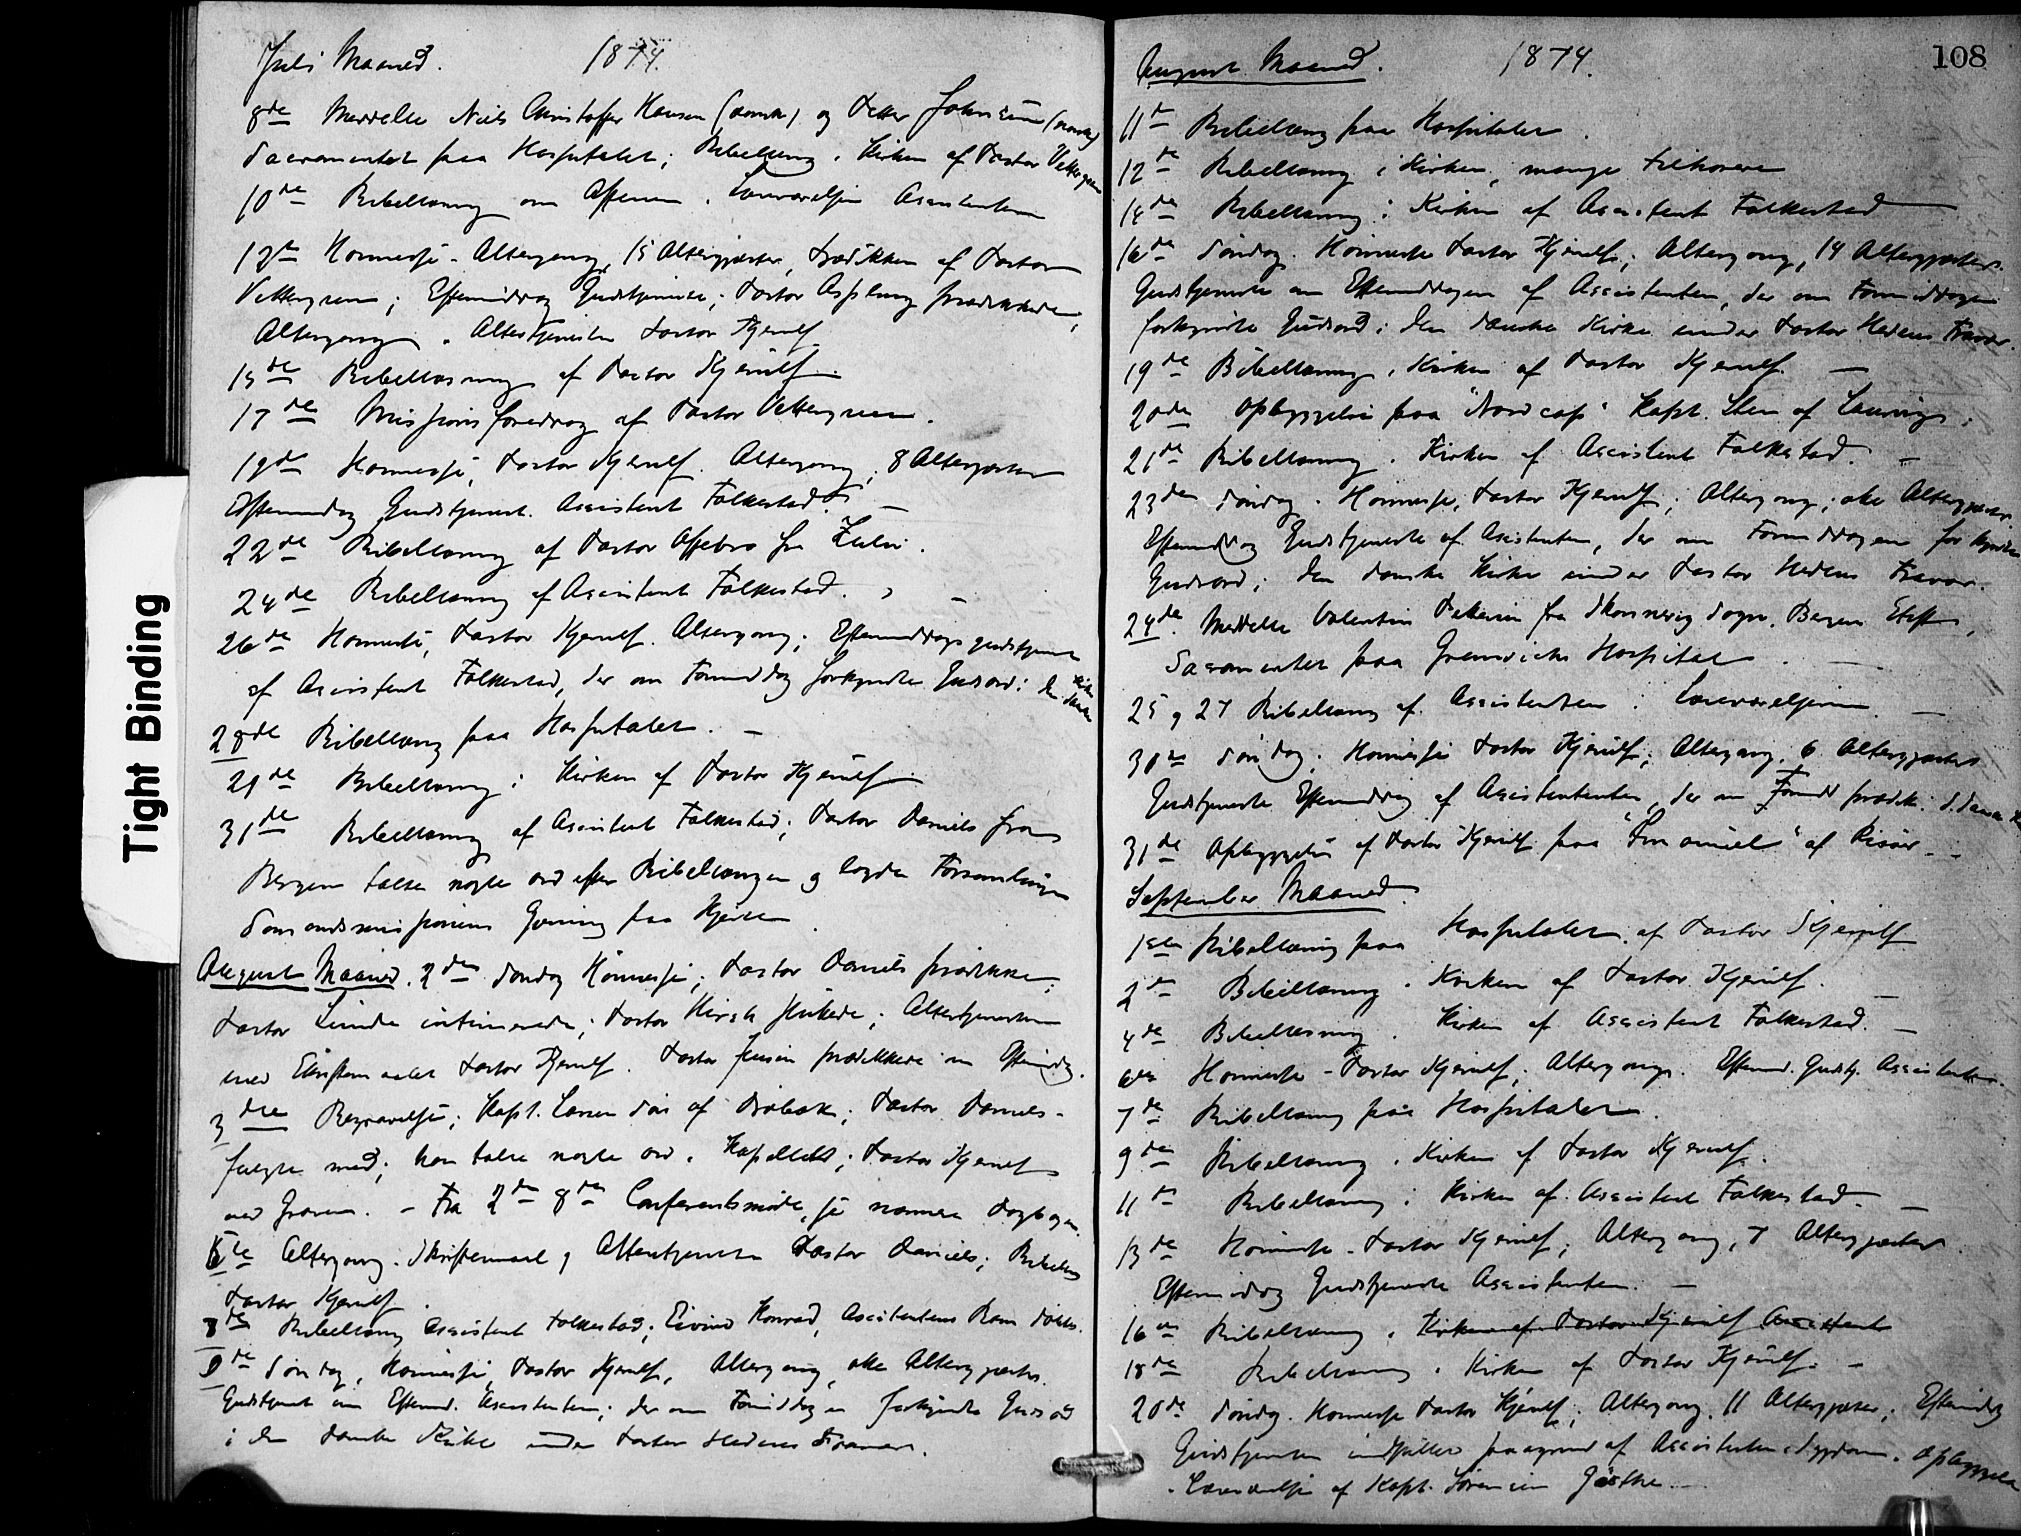 Juli Maaned. 1874.
8de Meddelte Niels Christoffer Hansen (dansk) og Petter Johnsen (norsk)
Sacramentet paa Hospitalet; Bibellæsng i Kirken af Pastor Vettergreen
10de Bibellæsning om Aftenen i Læseværelset Assistenten
12te Høimesse - Altergang, 15 Altergjæster, Prædikken af Pastor
Vettergreen; Eftermiddag Gudstjeneste; Pastor Asplung prædikkede,
Altergang. Altertjenesten Pastor Kjerulf
15de Bibellæsning af Pastor Kjerulf.
17de Missionsforedrag af Pastor Vettergreen.
19de Høimesse, Pastor Kjerulf. Altergang, 8 Altergjæster
Eftermiddag Gudstjenest. Assistent Falkestad. —
22de Bibellæsning af Pastor fra Zulu.
24de Bibellæsning af Assistent Falkestad. —
26de Høimesse, Pastor Kjerulf. Altergang; Eftermiddags gudstjenest
af Assistent Falkestad, der om Formiddag forkyndte Gudsord i den danske Kirke
28de Bibellæsng paa Hospitalet. —
29de Bibellæsning i Kirken af Pastor Kjerulf
31de Bibellæsning af Assistent Falkestad; Pastor Daniels fra
Bergen talte nogle ord efter Bibellæsngen og lagde Forsamlingen
Sømandsmissionens Gjerning paa Hjertet
August Maaned. 2den Søndag Høimesse; Pastor Daniels prædikkede,
Pastor Lunde intimerede; Pastor Hirsh; Altertjenesten
med Skriftemaalet Pastor Kjerulf. Pastor Jensen prædikkede om Eftermidg.
3die Begravelse; Kapt. Larsen af Drøbak; Pastor Daniels
fulgte med; han talte nogle ord i Kapellet; Pastor Kjerulf
ved Graven. — Fra 2den 8de Conferentsmøde, se nærmere dagbogen
6te Altergang. Skriftemaal og Altertjeneste Pastor Daniels; Bibellæs
Pastor Kjerulf.
8de Bibellæsng Assistent Falkestad; Eivind Konrad, Assistentens Barn døbt.
9de Søndag, Høimesse Pastor Kjerulf, Altergang, otte Altergjæster.
Gudstjenest om Efterm. Assistenten; der om Formiddagen forkyndte Gudsord
i den danske Kirke under Pastor Hedens Fravær.
August Maaned. 1874. 108
11te Bibellæsng paa Hospitalet.
12te Bibellæsng i Kirken, mange tilhørere
14de Bibellæsng i Kirken af Assistent Falkestad
16de Søndag. Høimesse Pastor Kjerulf; Altergang, 14 Altergjæster.
Gudstjeneste om Eftermiddagen af Assistenten, der om Formiddagen
forkyndte Gudsord i den danske Kirke under Pastor Hedens Fravær.
19de Bibellæsning i Kirken af Pastor Kjerulf —
20de Opbyggelse paa "Nordcap" Kapt. af Laurvig.
21de Bibellæsning i Kirken af Assistent Falkestad. —
23de Søndag. Høimesse, Pastor Kjerulf; Altergang; otte Altergjæster.
Eftermiddag Gudstjeneste af Assistenten, der om Formiddagen forkyndte
Gudsord i den danske Kirke under Pastor Hedens Fravær.
24de. Meddelte Valentin fra Sogn, Bergens Stift,
Sacramentet paa Greenwichs Hospital.
25 og 27 Bibellæsng af Assistenten i Læseværelserne. —
30te Søndag. Høimesse Pastor Kjerulf; Altergang, 6 Altergjæster
Gudstjeneste Eftermiddag af Assistententen, der om Formidd prædik. i d. danske Kir
31te Opbyggelse af Pastor Kjerulf paa "Imanuel" af Risør. —
September Maaned.
1ste Bibellæsning paa Hospitalet af Pastor Kjerulf
2den Bibellæsning i Kirken af Pastor Kjerulf. —
4de Bibellæsning i Kirken af Assistent Falkestad. —
6te Høimesse - Pastor Kjerulf; Altergang. Efterm. Gudstj. Assistenten.
7de Bibellæsng paa Hospitalet.
9de Bibellæsning i Kirken af Pastor Kjerulf.
11te Bibellæsng i Kirken af Assistent Falkestad. —
13de Høimesse - Pastor Kjerulf; Altergang, 7 Altergjæster.
Eftermiddag Gudstjeneste Assistenten. —
16de Bibellæsning i Kirken af Pastor Kjerulf Assistent
18de Bibellæsng i Kirken af Pastor Kjerulf. —
20de Søndag. Høimesse Pastor Kjerulf; Altergang, 11 Altergjæster; Eftermidg
Gudstjenesten indstillet paagrund af Assistentens Sygdom. Opbyggelse
i Læseværelset af Kapt. Sørensen
Tight Binding